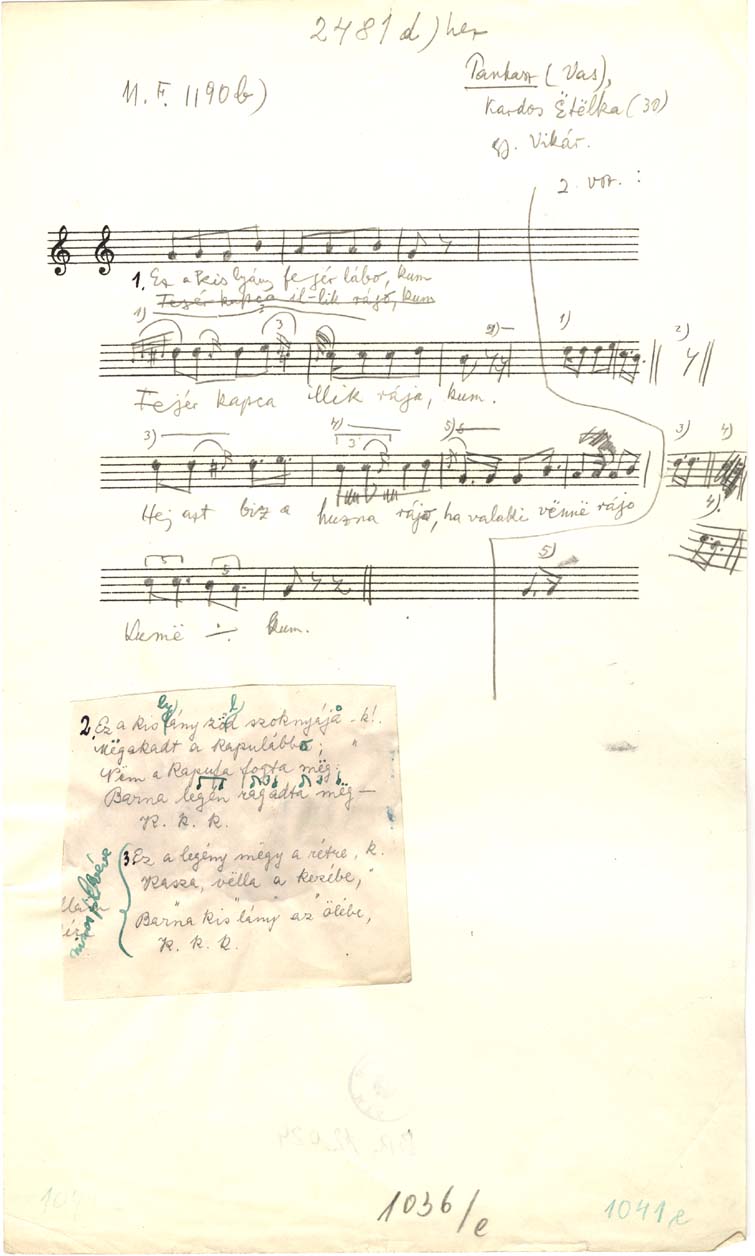 2481 d) her
M. F. 1190 b)
Pankasz (Vas),
Kardos Ëtëlka (30)
gy. Vikár.
2. vsz. :
1. Ez a kis lyány fejér lábo, kum
Fejér kapca il-lik rájo, kum
1)
3
3
2)
1)
2)
Fejér kapca illik rája, kum.
3)
4)
3
5)
3)
4)
Hej azt biz a huzna rájo, ha valaki vënnë rájo
4)
5
5
5)
Kumë ÷ kum.
2. Ez a kis lyány zöd szoknyájá - k!.
Mëgakadt a kapulábbo; "
Nëm a kapufa fogta mëg,
Barna legén ragadta mëg —
K. k. k.
3 Ez a legény mëgy a rétre, k.
Kasza, vëlla a kezébe, "
Barna kis lány az ölébe,
K. k. k.
nincs fölvéve
BR. 12.024
1036/e
1041/e